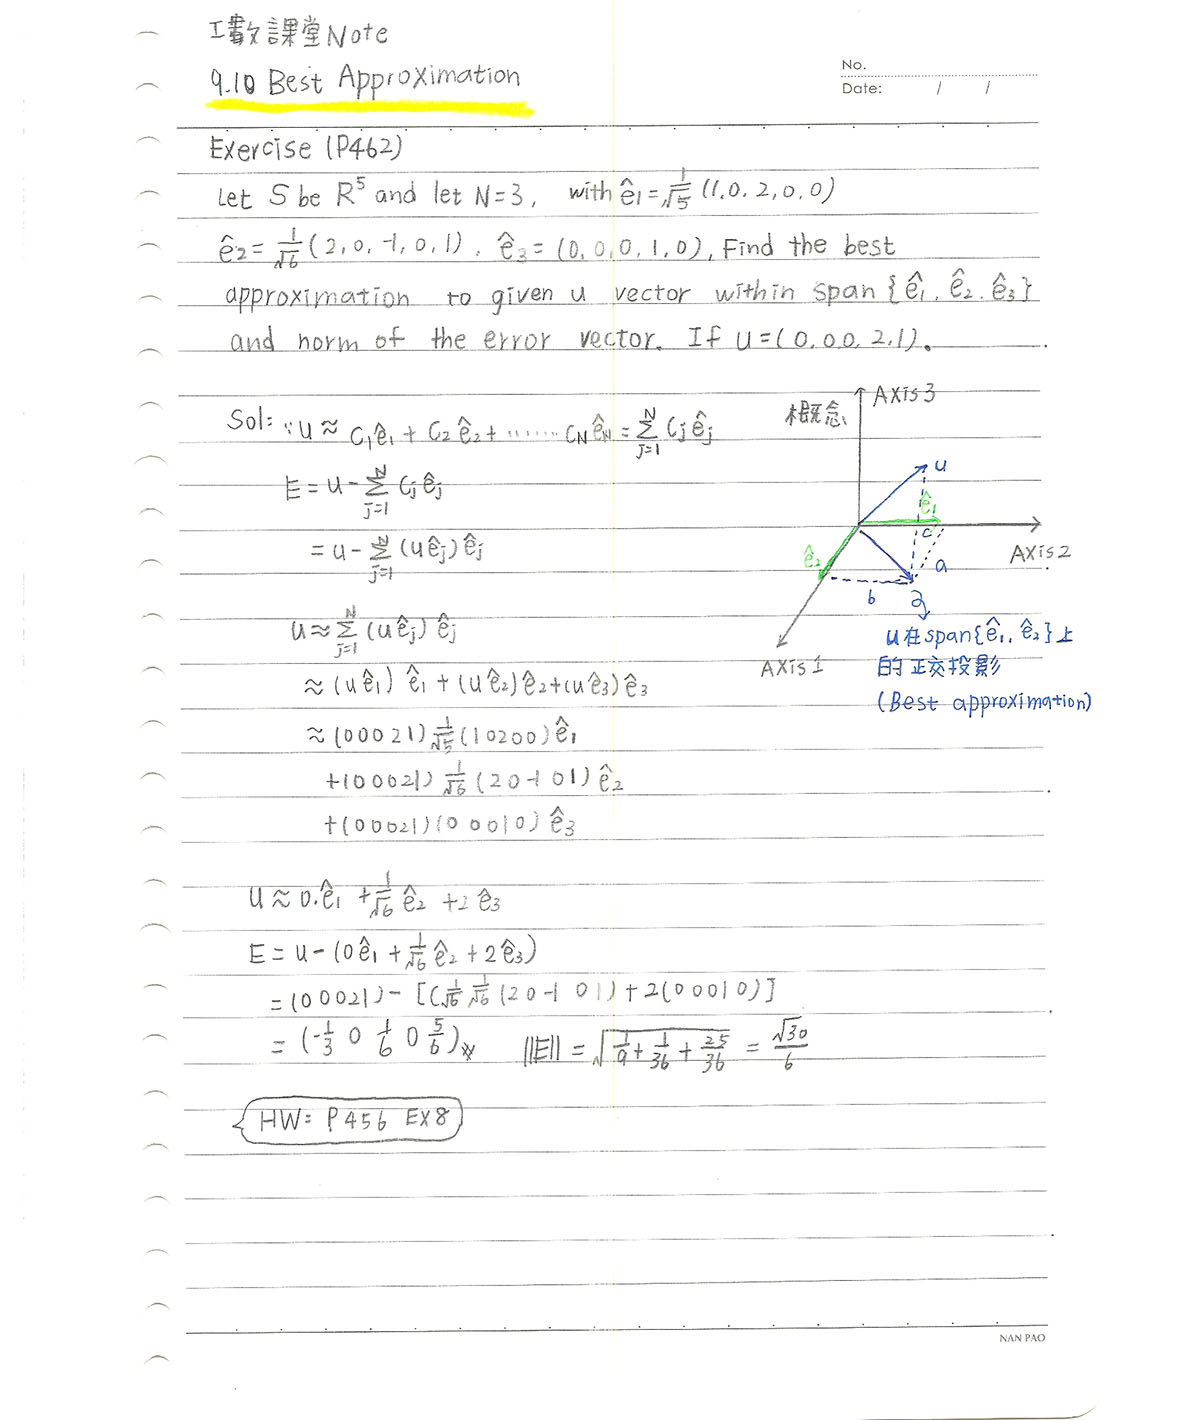 工數課堂Note
9.10 Best Approximation
No.
Date: / /
Exercise (P462)
Let S be R⁵ and let N=3, with ê₁=1/√5 (1,0,2,0,0)
ê₂=1/√6 (2,0,-1,0,1), ê₃=(0,0,0,1,0), Find the best
approximation to given u vector within span{ê₁,ê₂,ê₃}
and norm of the error vector. If u=(0,0,0,2,1).
Sol: ∵u≈C₁ê₁+C₂ê₂+⋯⋯CNêN=∑_{j=1}^{N} Cjêj
E=u-∑_{j=1}^{N} Cjêj
=u-∑_{j=1}^{N} (uêj)êj
u≈∑_{j=1}^{N} (uêj)êj
≈(uê₁)ê₁+(uê₂)ê₂+(uê₃)ê₃
≈(00021)1/√5(10200)ê₁
+(00021)1/√6(20-101)ê₂
+(00021)(00010)ê₃
概念
Axis3
u
ê₁
c
Axis2
ê₂
a
b
Axis1
u在span{ê₁,ê₂}上
的正交投影
(Best approximation)
u≈0.ê₁+1/√6ê₂+2ê₃
E=u-(0ê₁+1/√6ê₂+2ê₃)
=(00021)-[(1/√6 1/√6(20-101)+2(00010)]
=(-1/3 0 1/6 0 5/6)※ ||E||=√(1/9+1/36+25/36)=√30/6
HW: P456 EX8
NAN PAO